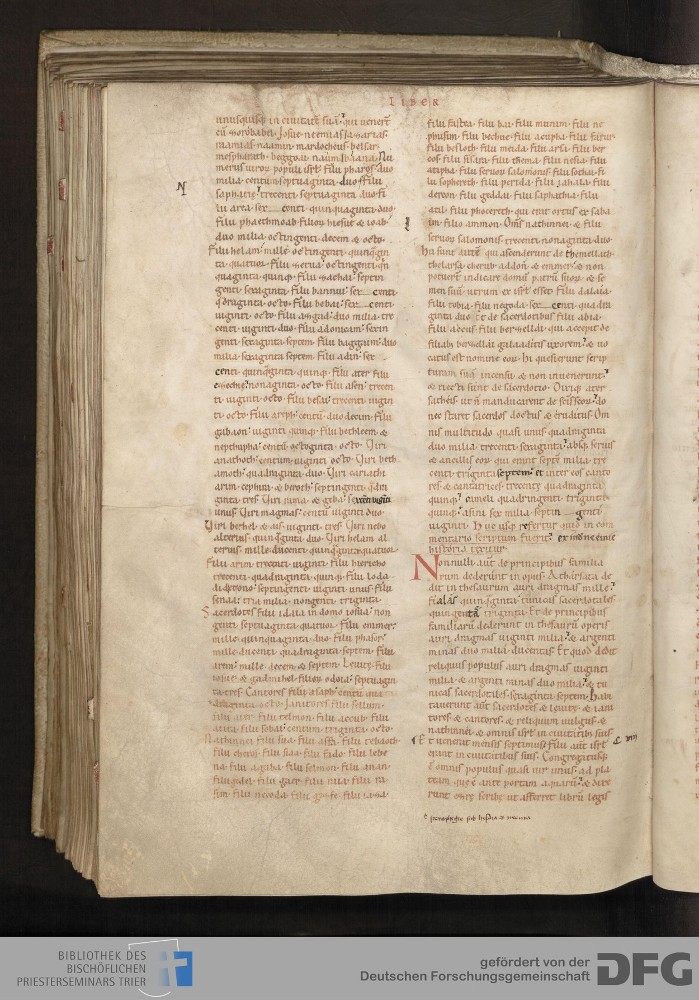 LIBER
unusquisq; in civitate sua. qui venert
cu zorobabel. Josue. neemias. Sarias.
naamias. naamni. mardocheus. belsar.
mespharath. beggoai. naum. baana. Nu
merus virorum populi isrl. filii pharos. duo
milia centum septuaginta duo. Filii
saphatie. trecenti septuaginta duo. fi
lii area. sex centi quinquaginta duo.
filii phaethmoab filiorum hiesue & ioab.
duo milia octingenti decem & octo.
Filii helam. mille octingenti quinqgin
ta quatuor. Filii zecua. octingenti q
quaginta quinq;. filii zachai. septin
genti sexaginta. filii bannui. sex centi
qdraginta octo. filii bebai. sex centi
viginti octo. filii azgad. duo milia tre
centi viginti duo. filii adonicam. sexcen
genti sexaginta septem. Filii baggium. duo
milia sexaginta septem. filii adin. sex
centi quinqginti quinq;. filii ater filii
ezechie. nonaginta octo. filii asen. trecen
ti viginti octo. filii besai. trecenti vigin
ti octo. filii areph. centu duo decim. filii
gabaon. viginti quinq;. filii bethleem &
nepthupha. centu octoginta octo. Viri
anathoth. centum viginti octo. Viri beth
amoth. quadraginta duo. Viri cariathi
arim. cephira & beroth. septingenti qdra
ginta tres. Viri rama & geba. sexcenti viginti
unus. Viri magmas. centu viginti duo.
Viri bethel & ai. viginti tres. Viri nebo
alterius. quinqginta duo. Viri helam al
terius. mille ducenti quinqginta quatuor.
Filii arim. trecenti viginti. filii hiericho
trecenti quadraginta quinq;. filii loda
didi & ono. septingenti viginti unus. filii
senaa. tria milia nongenti triginta.
Sacerdotes filii idaia in domo iosua. non
genti septuaginta quatuor. filii emmer.
mille quinquaginta duo. filii phasor.
mille ducenti quadraginta septem. filii
arem. mille decem & septem. Levite. fili
iosue & gadmihel filiorum odoia. septuagin
ta tres. Cantores. filii asaph. centu qua
draginta octo. Janitores. filii sellum.
filii ater. filii telmon. filii accub. filii
atita. filii sobai. centum triginta octo.
Nathinnei. filii sua. filii asfa. filii tebaoth.
filii cheros. filii siaa. filii fado. filii lobe
na. filii agaba. filii selmon. filii anan.
filii gedel. filii gaer. filii raia. filii ra
sin. filii necoda. filii gezem. filii iaza.
filii fasea. filii bai. filii munim. filii ne
phusim. filii bechue. filii acupha. filii harur.
filii besloth. filii meida. filii arsa. filii ber
cos. filii sisara. filii thema. filii nesia. filii
atipha. filii servorum salomonis. filii sothai. fi
lii sophereth. filii perida. filii iahala. filii
dercon. filii geddel. filii saphathia. filii
atil. filii phocereth. qui erat ortus ex saba
im. filio ammon. Oms nathinnei & filii
servorum salomonis. trecenti nonaginta duo.
Hii sunt aute qui ascenderunt de themellath.
thelarsa. cherub. addon. & emmer. & non
potuert indicare domu patru suorum. & se
men suu. utrum ex isrl esset. filii dalaia.
filii tobia. filii negoda. sex centi quadra
ginta duo. Et de sacerdotibus filii abia.
filii accus. filii berzellai. qui accepit de
filiab; berzellai galaaditis uxorem. & vo
catus est nomine eorum. Hi quesierunt scrip
turam sua in censu. & non invenerunt.
& eiecti sunt de sacerdotio. Dixitq; ater
sathes ut n manducarent de scis scorum. do
nec staret sacerdos doctus & eruditus. Om
nis multitudo quasi unus quadraginta
duo milia trecenti sexaginta. absq; servis
& ancillis eorum. qui erant septe milia tre
centi triginta septem. et inter eos canto
res & cantatrices trecente quadraginta
quinq;. cameli quadringenti triginta
quinq;. asini sex milia septin genti
viginti. Huc usq; refertur quid in com
mentario scriptum fuerit. ex in neemie
historia texitur.
Nonnulli aut de principibus familia
rum dederunt in opus. Athersata de
dit in thesaurum auri dragmas mille.
fialas quinqginta. tunicas sacerdotales
quingentas triginta. Et de principibus
familiaru dederunt in thesauru operis
auri dragmas viginti milia. & argenti
minas duo milia ducentas. Et quod dedit
reliquus populus auri dragmas viginti
milia. & argenti minas duo milia. & tu
nicas sacerdotales sexaginta septem. Habi
taverunt aut sacerdotes & levite. & ian
tores & cantores. & reliquum vulgus &
nathinnei. & omnis isrl in civitatib; suis
Et venerat mensis septimus. Filii aut isrl
erant in civitatibus suis. Congregatusq;
e omnis populus quasi vir unus. ad pla
team que e ante portam aquaru. & dixe
runt esdre scribe ut afferret libru legis
BIBLIOTHEK DES
BISCHÖFLICHEN
PRIESTERSEMINARS TRIER
gefördert von der
Deutschen Forschungsgemeinschaft
DFG